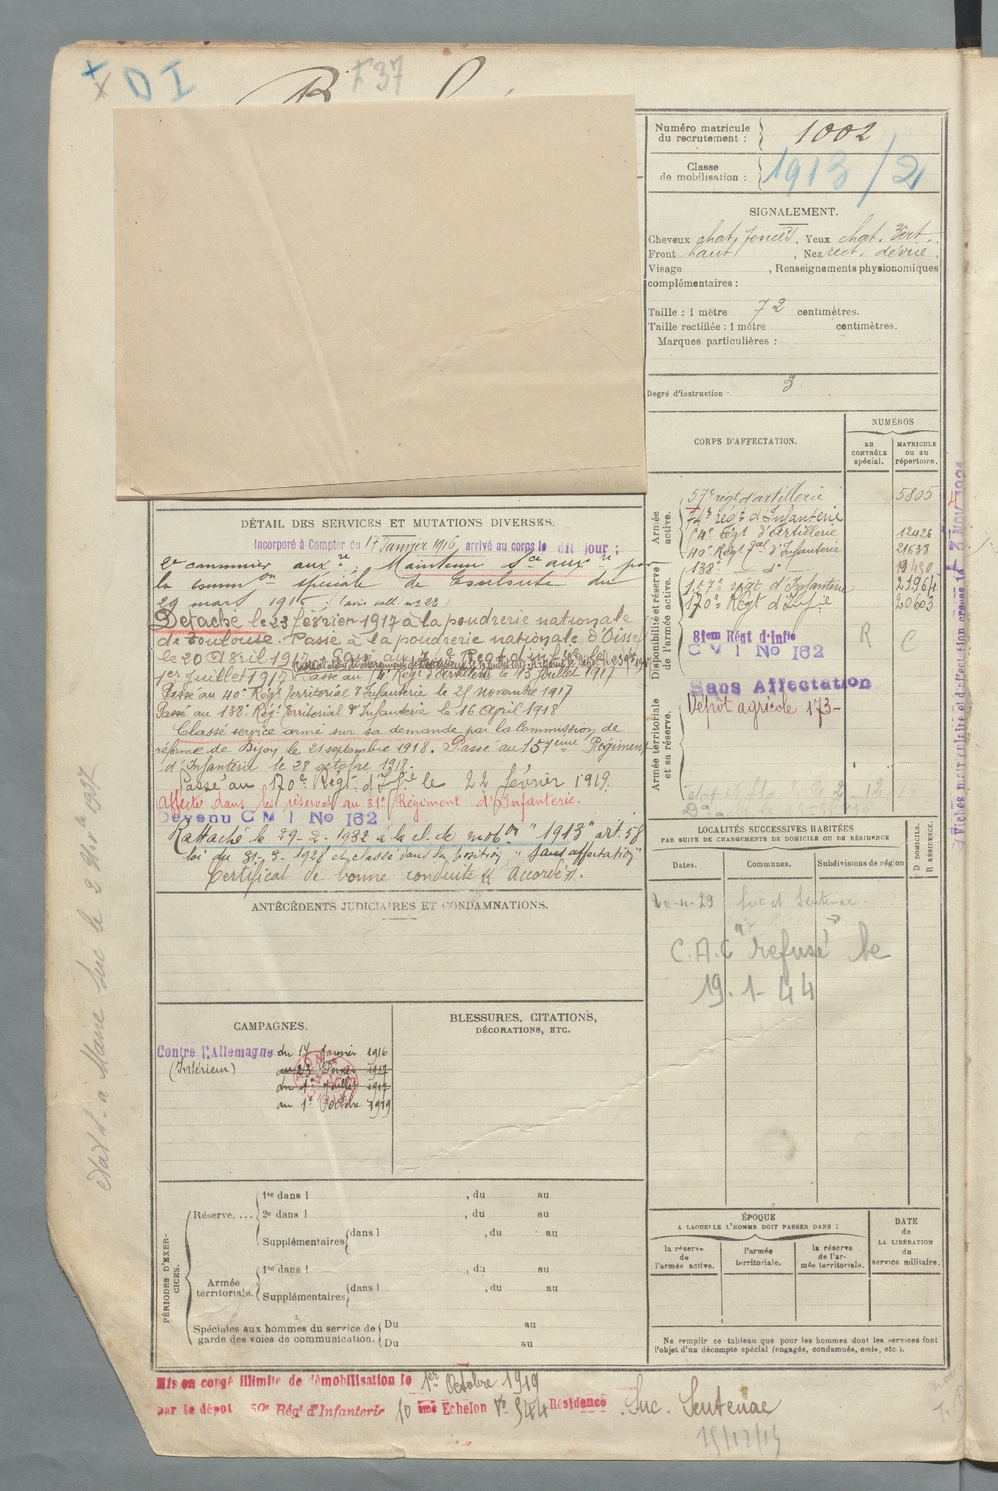 + D I
F 37
Numéro matricule du recrutement : 1002
Classe de mobilisation : 1913/2
SIGNALEMENT.
Cheveux chat. foncés. Yeux chat. Vert.
Front haut, Nez rect. dévié.
Visage , Renseignements physionomiques
complémentaires :
Taille : 1 mètre 72 centimètres.
Taille rectifiée : 1 mètre centimètres.
Marques particulières :
Degré d'instruction 3
CORPS D'AFFECTATION.
NUMÉROS
AU CONTRÔLE spécial.
MATRICULE OU AU répertoire.
Armée active.
57e régt d'artillerie 5805
74e régt d'Infanterie
14e Régt d'Artillerie 12426
40e Régt Tal d'Infanterie 21638
Disponibilité et réserve de l'armée active.
138e - d° - 19430
157e régt d'Infanterie 21964
170e Régt d'Inf.ie 20603
81em Régt d'Infie
C M I No 162
R C
Sans Affectation
Armée territoriale et sa réserve.
Dépôt agricole 173-
DÉTAIL DES SERVICES ET MUTATIONS DIVERSES.
Incorporé à Compter du 17 Janvier 1916 arrivé au corps le dit jour ;
2e canonnier aux.re Maintenu Sce auxre par
la common spéciale de Toulouse du
29 mars 1916
Détaché le 23 février 1917 à la poudrerie nationale
de Toulouse. Passé à la poudrerie nationale d'Oissel
le 20 Avril 1917
1er Juillet 1917 Passé au 14e Régt d'Artillerie le 13 Juillet 1917
Passé au 40e Régt Territorial d'Infanterie le 25 novembre 1917
Passé au 138e Régt Territorial d'Infanterie le 16 April 1918
Classé service armé sur sa demande par la Commission de
réforme de Dijon le 21 septembre 1918. Passé au 157eme Régiment
d'Infanterie le 28 octobre 1918.
Passé au 170e Régt d'Inf.ie le 22 février 1919.
Affecté dans les réserves au 81e Régiment d'Infanterie.
Devenu C M I No 162
Rattaché le 29-2-1932 à la cl. de mobon "1913" art. 58
loi du 31-3-1928 et classé dans la position "sans affectation"
Certificat de bonne conduite "Accordé".
ANTÉCÉDENTS JUDICIAIRES ET CONDAMNATIONS.
LOCALITÉS SUCCESSIVES HABITÉES
PAR SUITE DE CHANGEMENTS DE DOMICILE OU DE RÉSIDENCE
D DOMICILE. R RÉSIDENCE.
Dates. Communes. Subdivisions de région
20-11-29 Suc et Sentenac
C.A.C "refusé" le
19-1-44
CAMPAGNES.
Contre l'Allemagne du 17 Janvier 1916
(Intérieur) au 23 Février 1917
du 1er Juillet 1917
au 1er Octobre 1919
BLESSURES, CITATIONS,
DÉCORATIONS, ETC.
PÉRIODES D'EXERCICES.
Réserve....
1re dans l , du au
2e dans l , du au
Supplémentaires dans l , du au
Armée territoriale.
1re dans l , du au
Supplémentaires dans l , du au
Spéciales aux hommes du service de garde des voies de communication.
Du au
Du au
ÉPOQUE
A LAQUELLE L'HOMME DOIT PASSER DANS :
la réserve de l'armée active.
l'armée territoriale.
la réserve de l'armée territoriale.
DATE de LA LIBÉRATION du service militaire.
Ne remplir ce tableau que pour les hommes dont les services font
l'objet d'un décompte spécial (engagés, condamnés, omis, etc.).
Mis en congé illimité de démobilisation le 1er Octobre 1919
par le dépôt 50e Régt d'Infanterie 10 ème Echelon No 544 Résidence Suc. Sentenac